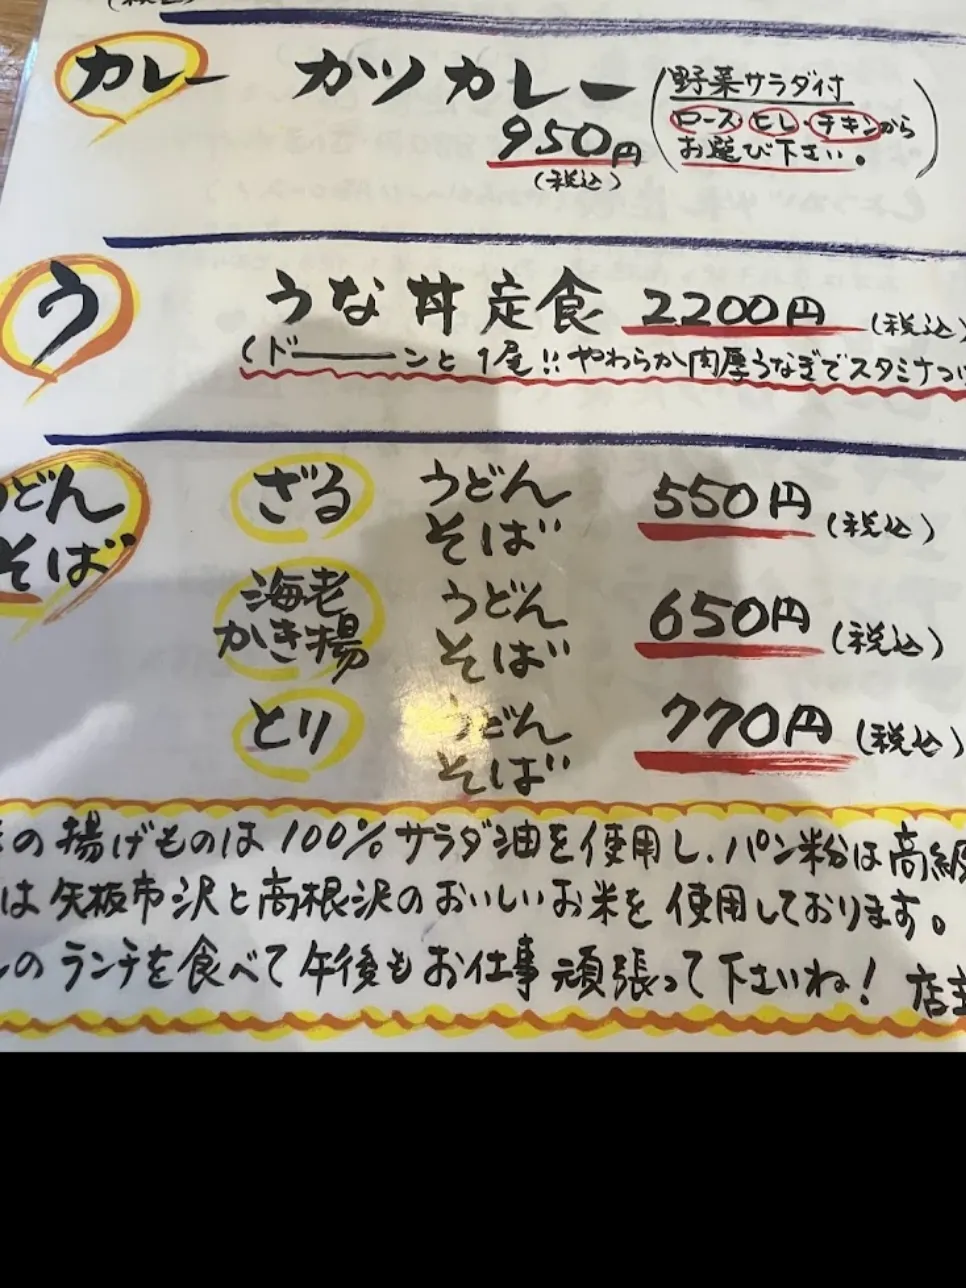 カレー カツカレー (野菜サラダ付
ロース・ヒレ・チキンから
お選び下さい。)
950円
(税込)
う うな丼定食 2200円 (税込)
(ドーーーンと1尾!!やわらか肉厚うなぎでスタミナつ
うどん
そば
ざる うどん
そば 550円(税込)
海老
かき揚 うどん
そば 650円(税込)
とり うどん
そば 770円(税込)
の揚げものは100%サラダ油を使用し、パン粉は高級
は矢板市沢と高根沢のおいしいお米を使用しております。
のランチを食べて午後もお仕事頑張って下さいね! 店主